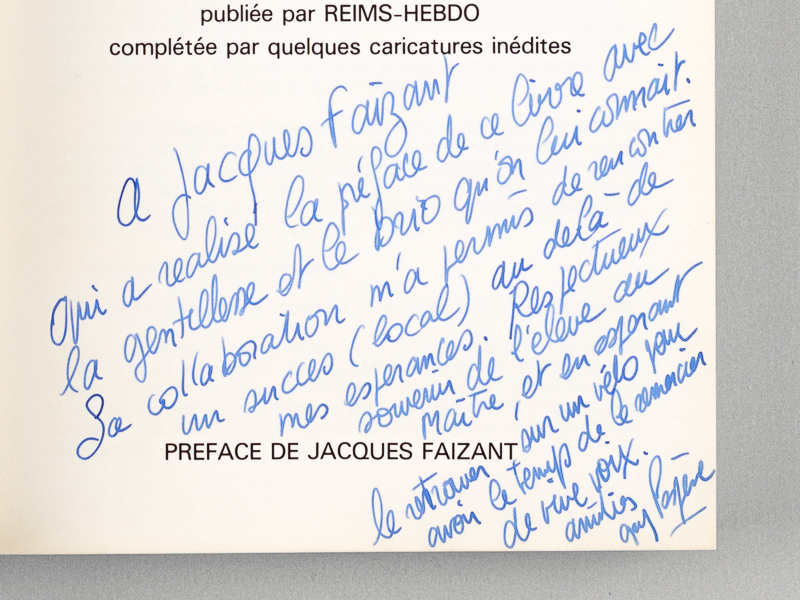 publiée par REIMS-HEBDO
complétée par quelques caricatures inédites
A Jacques Faizant
qui a realisé la préface de ce livre avec
la gentillesse et le brio qu'on lui connait.
Sa collaboration m'a permis de rencontrer
un succes (local) au delà de
mes esperances. Respectueux
souvenir de l'élève au
Maître, et en esperant
le retrouver sur un vélo pour
avoir le temps de le remercier
de vive voix.
amitiés
guy
PREFACE DE JACQUES FAIZANT